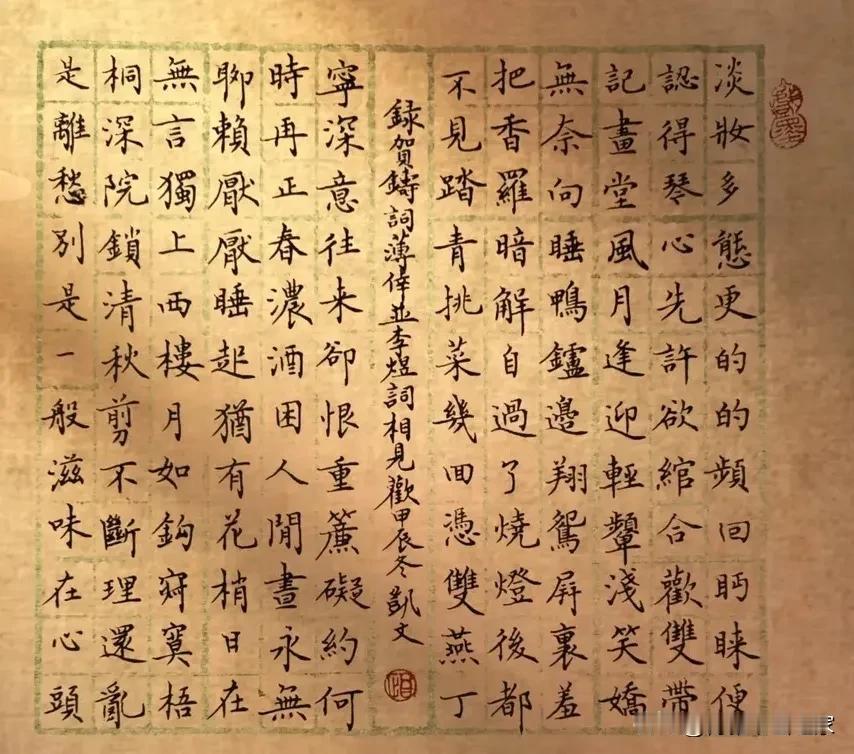 淡妝多態更的的頻回眄睞便
認得琴心先許欲綰合歡雙帶
記畫堂風月逢迎輕顰淺笑嬌
無奈向睡鴨鑪邊翔鴛屏裏羞
把香羅暗解自過了燒燈後都
不見踏青挑菜幾回憑雙燕丁
録賀鑄詞薄倖並李煜詞相見歡甲辰冬凱文
寧深意往来卻恨重簾礙約何
時再正春濃酒困人閒晝永無
聊賴厭厭睡起猶有花梢日在
無言獨上西樓月如鈎寂寞梧
桐深院鎖清秋剪不斷理還亂
是離愁別是一般滋味在心頭